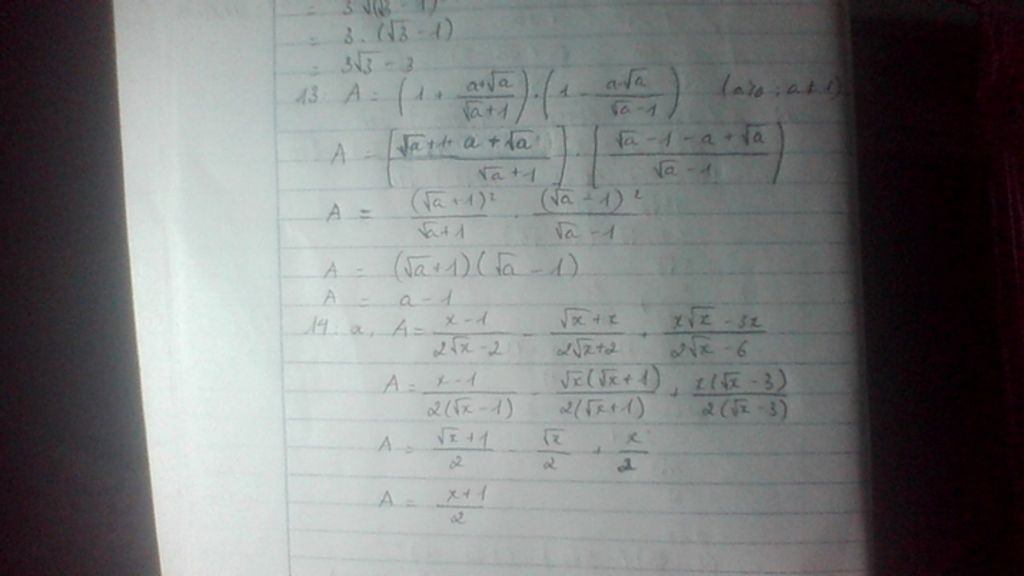 = 3√(√3 - 1)
= 3 . (√3 - 1)
= 3√3 - 3
13: A = (1 + (a+√a)/(√a+1)) . (1 - (a-√a)/(√a-1)) (a≥0 ; a≠1)
A = [(√a+1+a+√a)/(√a+1)] . [(√a-1-a+√a)/(√a-1)]
A = (√a+1)²/(√a+1) . (√a-1)²/(√a-1)
A = (√a+1)(√a-1)
A = a-1
14: a, A = (x-1)/(2√x-2) - (√x+x)/(2√x+2) + (x√x-3x)/(2√x-6)
A = (x-1)/(2(√x-1)) - (√x(√x+1))/(2(√x+1)) + (x(√x-3))/(2(√x-3))
A = (√x+1)/2 - √x/2 + x/2
A = (x+1)/2